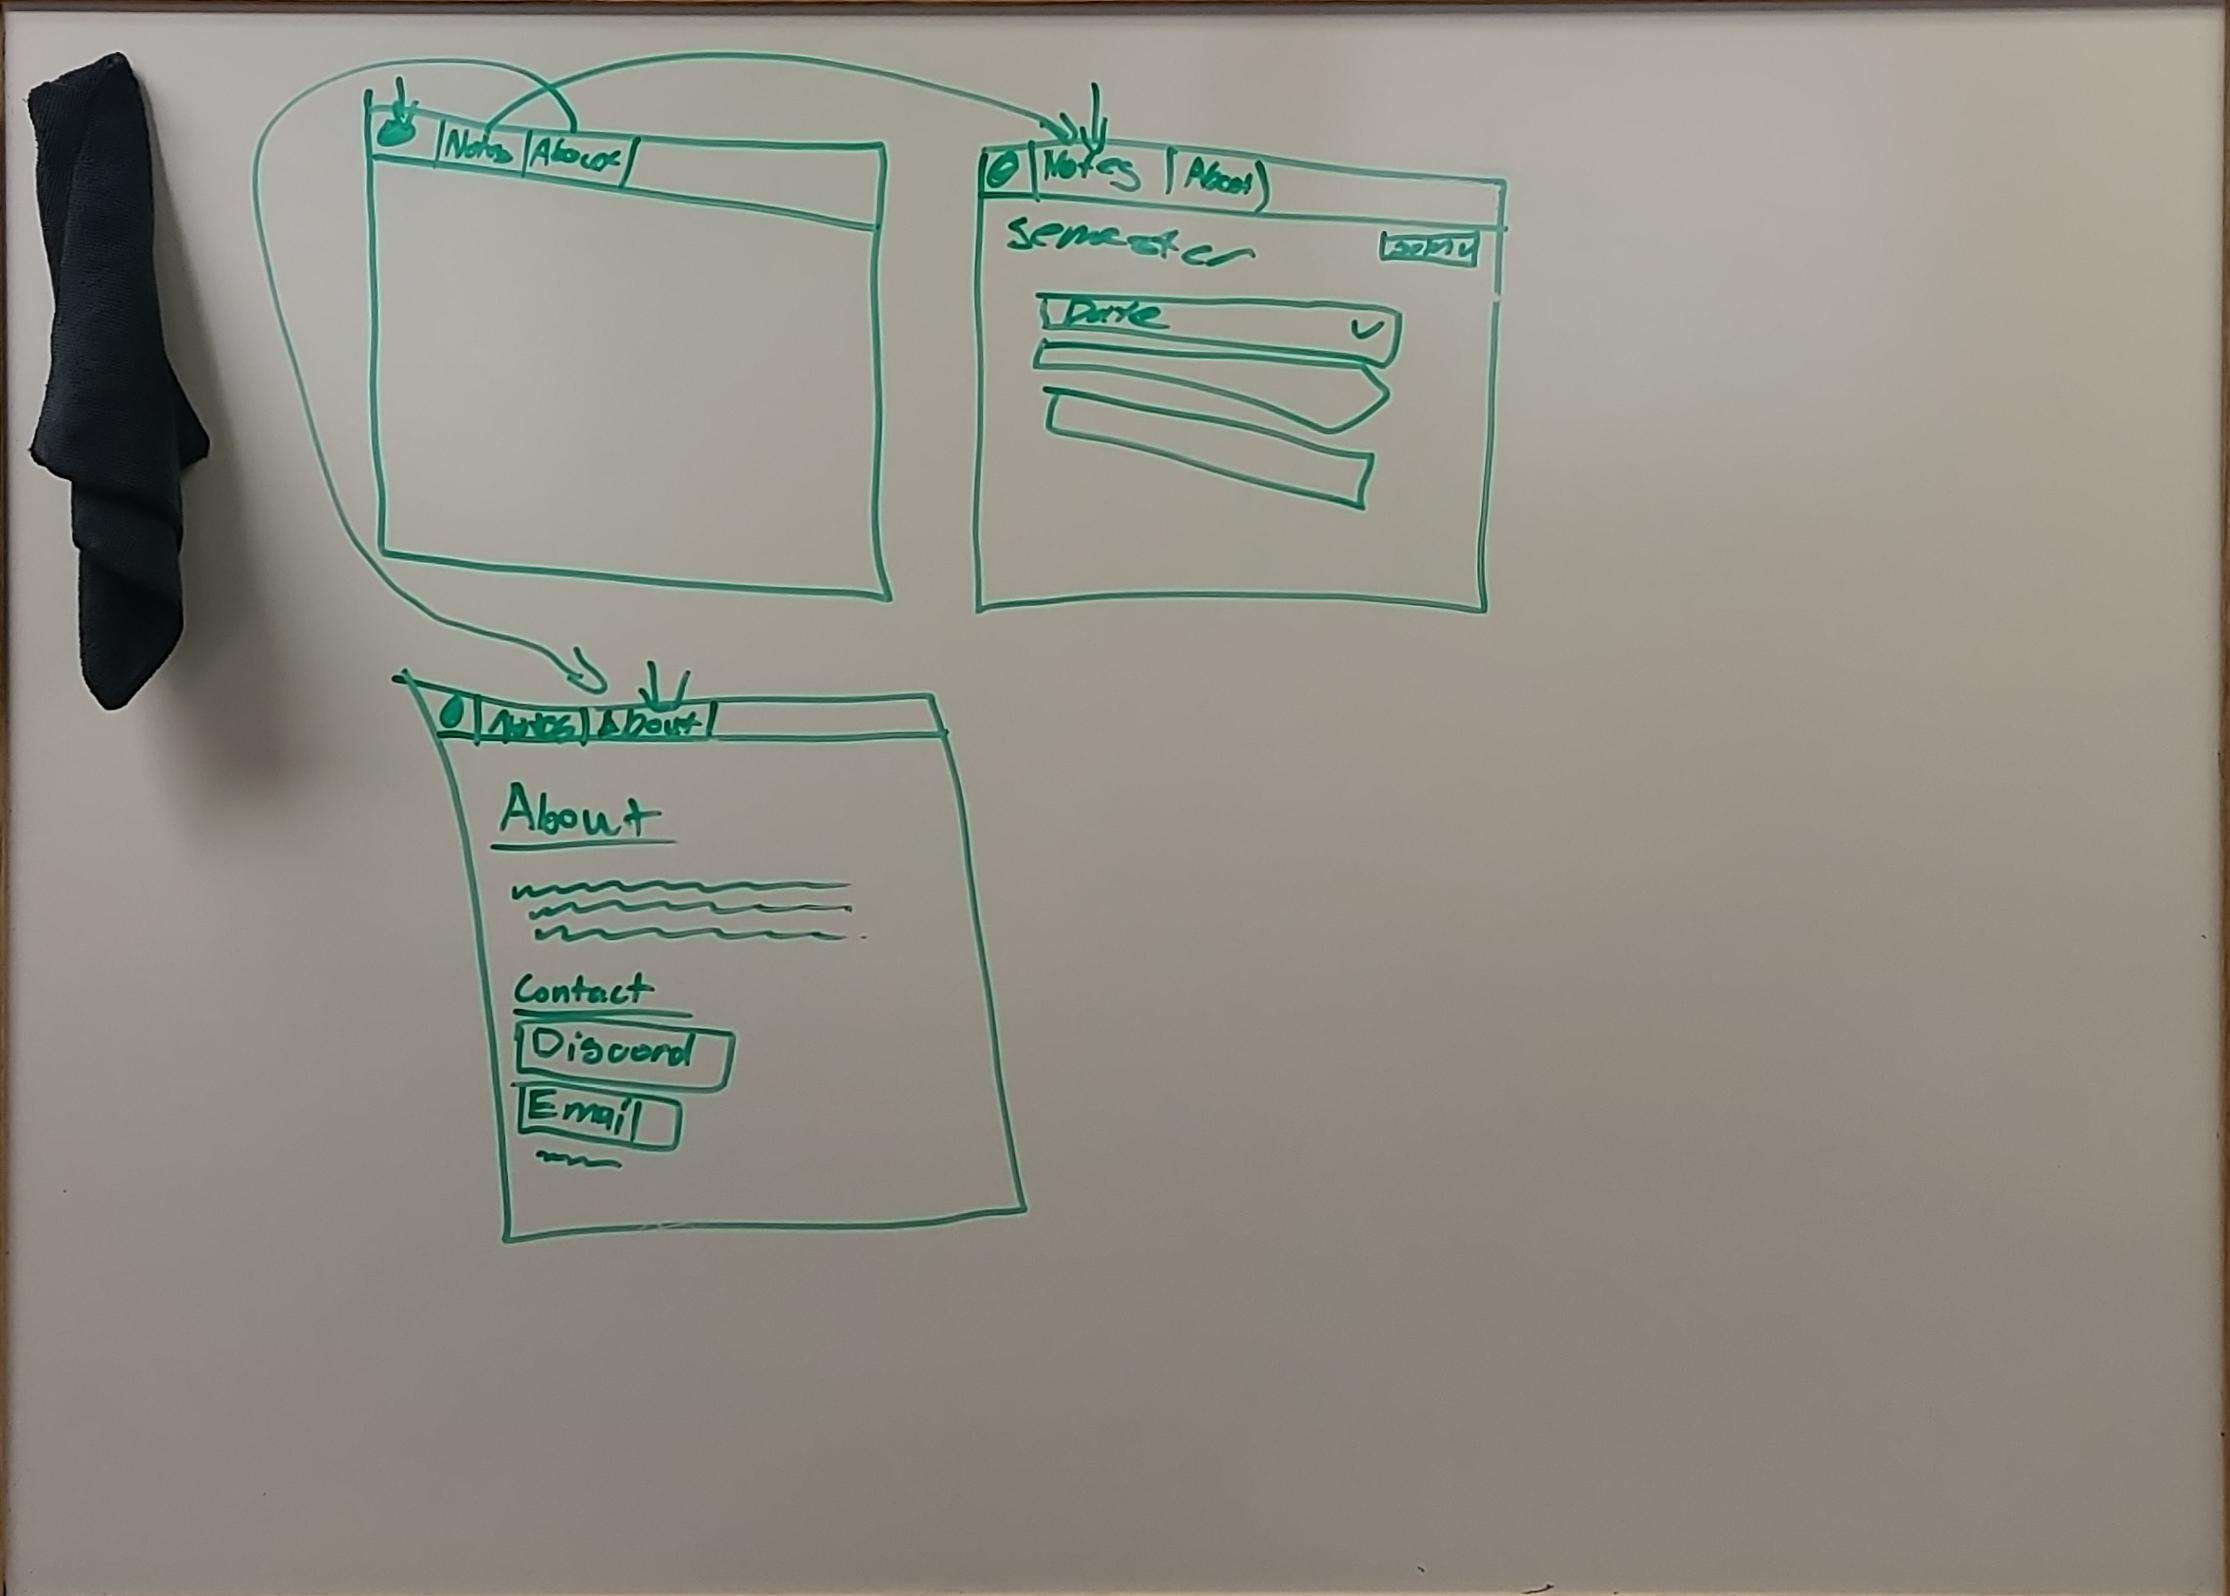 Notes About
Notes About
Semester
Date
Notes About
About
Contact
Discord
Email